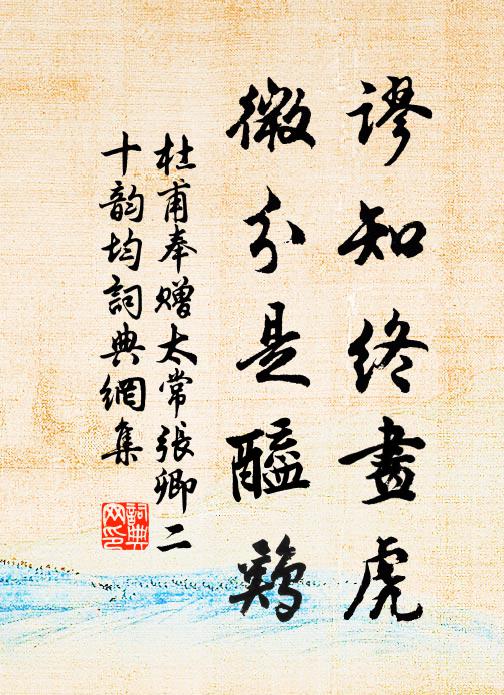 谬知终画虎
微分是醯鸡
杜甫奉赠太常张卿二
十韵均词典网集
词典网印